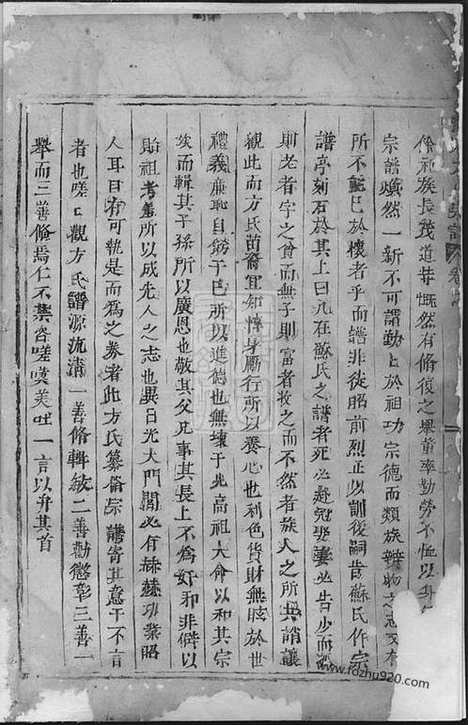 族長茂道昔慨然有脩復之舉董率勤勞不恤以
宗譜煥然一新不可謂勤上於祖功宗德而類族辨物之志又不
所不能已於懷者乎而譜非從昭前烈正以訓後嗣昔蘇氏作宗
譜亭刻石於其上曰凡在蘇氏之譜者死必赴冠娶妻必告少而孤
則老者字之貧而無子則富者收之而不然者族人之所共誚讓
觀此而方氏苗裔宜知惇身勵行所以養心也利色貨財無眩於世
禮義廉恥自飭于己所以進德也無壞于先高祖大命以和其宗
族而輯其子孫所以廣恩也敬其父兄事其長上不為奸邪非僻以
貽祖考羞所以成先人之志也異日光大門閭必有赫赫功業昭
人耳目有可執是而為之券者此方氏纂脩宗譜寄其意于不言
者也嗟乎觀方氏譜源流清一善脩輯敏二善勸懲彰三善一
舉而三善脩焉仁不集咨嗟嘆美吐一言以弁其首
www.fozhu920.com